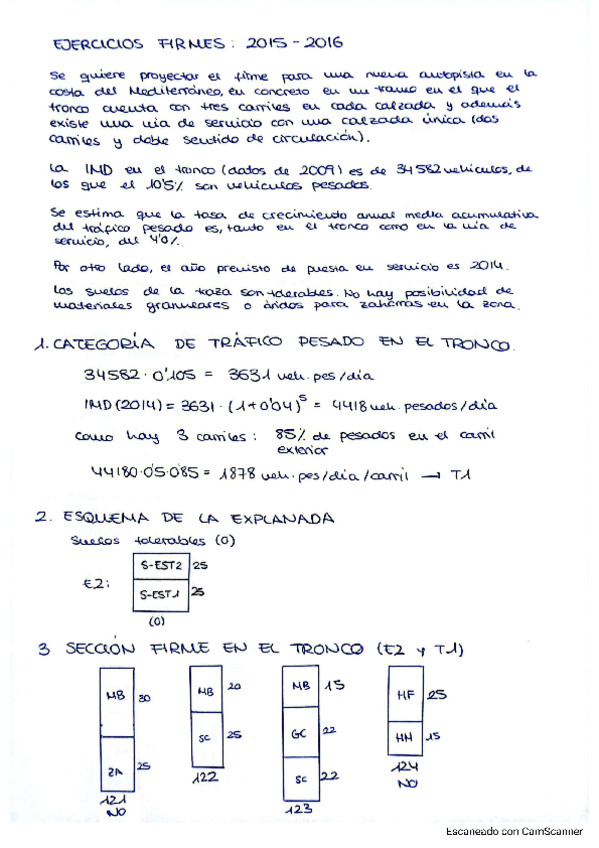 EJERCICIOS FIRMES: 2015-2016
Se quiere proyectar el firme para una nueva autopista en la
costa del Mediterráneo, en concreto en un tramo en el que el
tronco cuenta con tres carriles en cada calzada y además
existe una vía de servicio con una calzada única (dos
carriles y doble sentido de circulación).
La IMD en el tronco (datos de 2009) es de 34582 vehículos, de
los que el 10'5% son vehículos pesados.
Se estima que la tasa de crecimiento anual media acumulativa
del tráfico pesado es, tanto en el tronco como en la vía de
servicio, del 4'0%.
Por otro lado, el año previsto de puesta en servicio es 2014.
Los suelos de la traza son tolerables. No hay posibilidad de
materiales granulares o áridos para zahorras en la zona.
1. CATEGORÍA DE TRÁFICO PESADO EN EL TRONCO.
34582 · 0'105 = 3631 veh. pes/día
IMD(2014) = 3631 · (1+0'04)⁵ = 4418 veh. pesados/día
Como hay 3 carriles: 85% de pesados en el carril
exterior
44180·0'5·0'85 = 1878 veh. pes/día/carril → T1
2. ESQUEMA DE LA EXPLANADA
Suelos tolerables (0)
E2:
S-EST2 25
S-EST1 25
(0)
3 SECCIÓN FIRME EN EL TRONCO (E2 y T1)
MB 30
ZA 25
121
NO
MB 20
SC 25
122
MB 15
GC 22
SC 22
123
HF 25
HM 15
124
NO
Escaneado con CamScanner